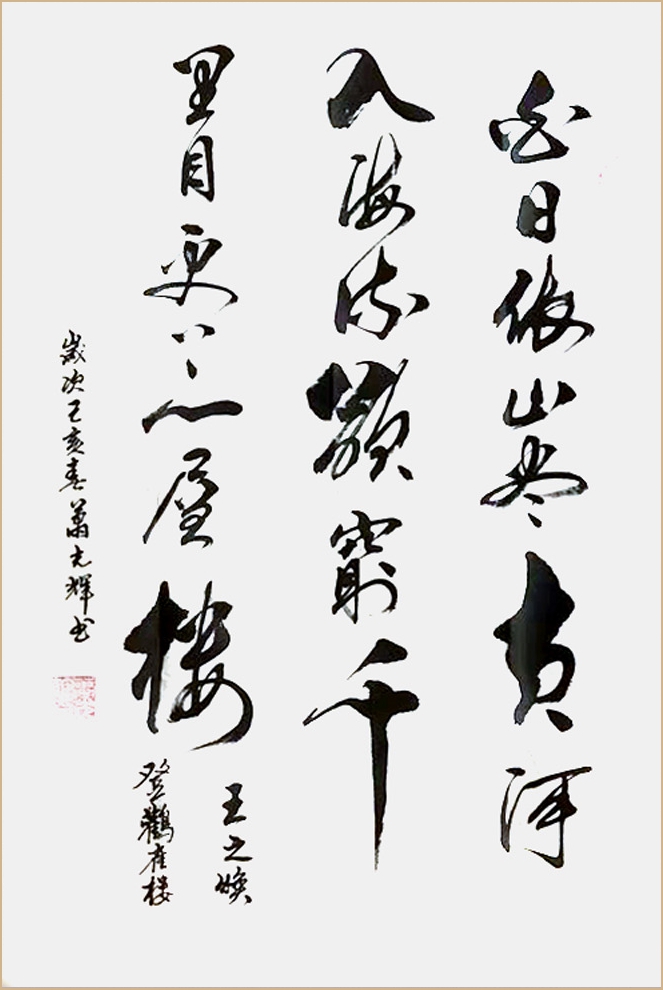 白日依山尽黄河
入海流欲穷千
里目更上一层楼
王之涣
登鸛雀楼
歲次己亥春蕭光輝书